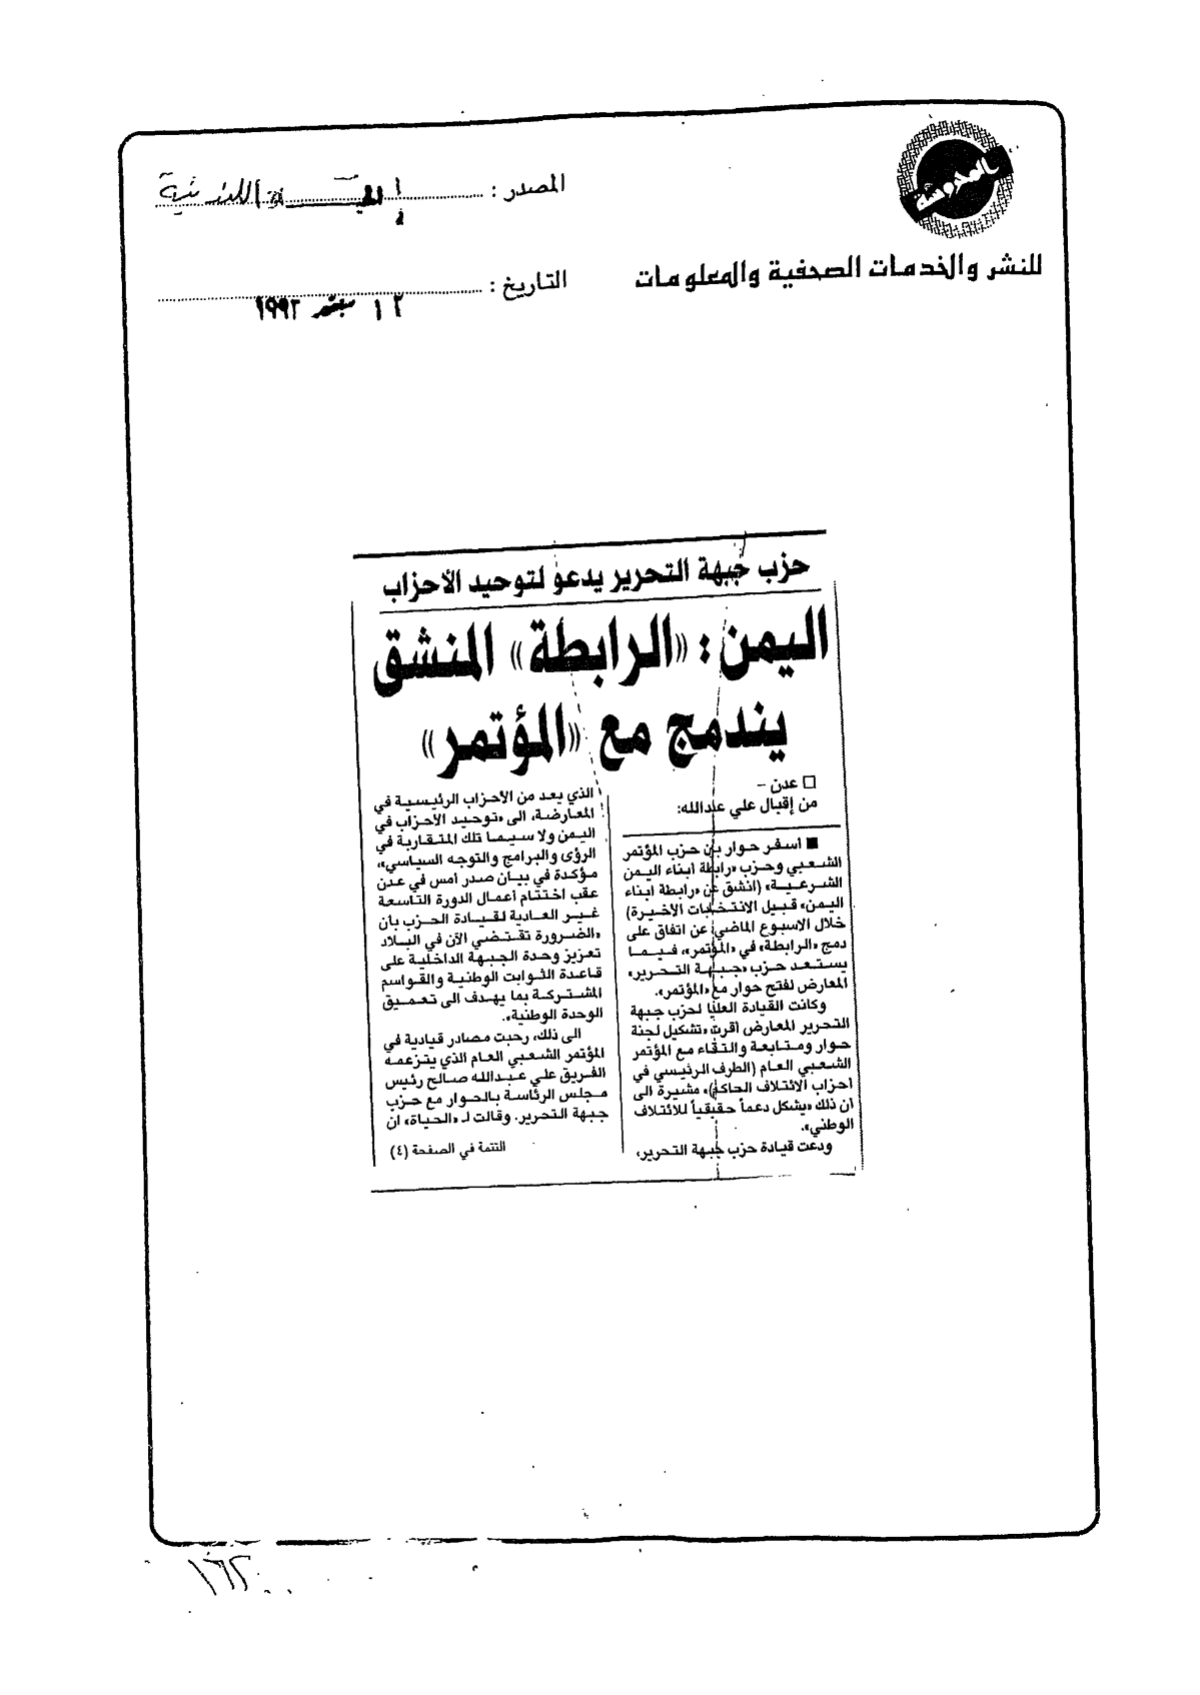 المصدر : الحيـــاة اللندنية
للنشر والخدمات الصحفية والمعلومات
التاريخ :
١٢ سبتمبر ١٩٩٣
حزب جبهة التحرير يدعو لتوحيد الأحزاب
اليمن : «الرابطة» المنشق
يندمج مع «المؤتمر»
□ عدن –
من إقبال علي عبدالله:
■ اسفر حوار بين حزب المؤتمر
الشعبي وحزب «رابطة ابناء اليمن
الشرعية» (انشق عن «رابطة ابناء
اليمن» قبيل الانتخابات الأخيرة)
خلال الاسبوع الماضي عن اتفاق على
دمج «الرابطة» في «المؤتمر»، فيما
يستعد حزب «جبهة التحرير»
المعارض لفتح حوار مع «المؤتمر».
وكانت القيادة العليا لحزب جبهة
التحرير المعارض أقرت «تشكيل لجنة
حوار ومتابعة والتقاء مع المؤتمر
الشعبي العام (الطرف الرئيسي في
احزاب الائتلاف الحاكم)» مشيرة الى
ان ذلك «يشكل دعماً حقيقياً للائتلاف
الوطني».
ودعت قيادة حزب جبهة التحرير،
الذي يعد من الأحزاب الرئيسية في
المعارضة، الى «توحيد الأحزاب في
اليمن ولا سيما تلك المتقاربة في
الرؤى والبرامج والتوجه السياسي»،
مؤكدة في بيان صدر أمس في عدن
عقب اختتام أعمال الدورة التاسعة
غير العادية لقيادة الحزب بأن
«الضرورة تقتضي الآن في البلاد
تعزيز وحدة الجبهة الداخلية على
قاعدة الثوابت الوطنية والقواسم
المشتركة بما يهدف الى تعميق
الوحدة الوطنية».
الى ذلك، رحبت مصادر قيادية في
المؤتمر الشعبي العام الذي يتزعمه
الفريق علي عبدالله صالح رئيس
مجلس الرئاسة بالحوار مع حزب
جبهة التحرير. وقالت لـ «الحياة» ان
التتمة في الصفحة (٤)
١٦٢